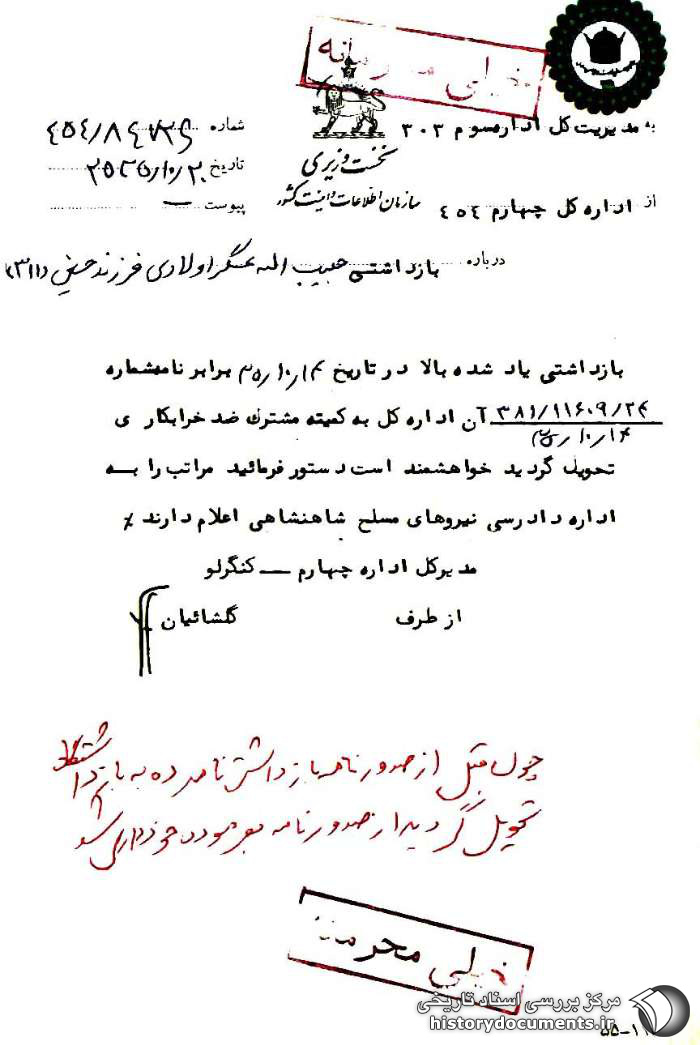 خیلی محرمانه
به مدیریت کل اداره سوم ۳۰۲
شماره
تاریخ ۲۵۳۵/۱۰/۲۰
پیوست
نخست وزیری
سازمان اطلاعات و امنیت کشور
از اداره کل چهارم ۴۵۴
درباره بازداشتی حبیب اله عسگراولادی فرزند حسین (۳۱۱)
بازداشتی یاد شده بالا در تاریخ ۳۵/۱۰/۱۴ برابر نامه شماره
۳۸۱/۱۱۶۰۹/۲۴ آن اداره کل به کمیته مشترک ضد خرابکاری
۳۵/۱۰/۱۴
تحویل گردید خواهشمند است دستور فرمائید مراتب را به
اداره دادرسی نیروهای مسلح شاهنشاهی اعلام دارند
مدیرکل اداره چهارم — کنگرلو
از طرف گلشائیان
چون قبل از صدور نامه بازداشتی نامبرده به بازداشتگاه
تحویل گردید از صدور نامه خودداری شد
خیلی محرمانه
مرکز بررسی اسناد تاریخی
historydocuments.ir